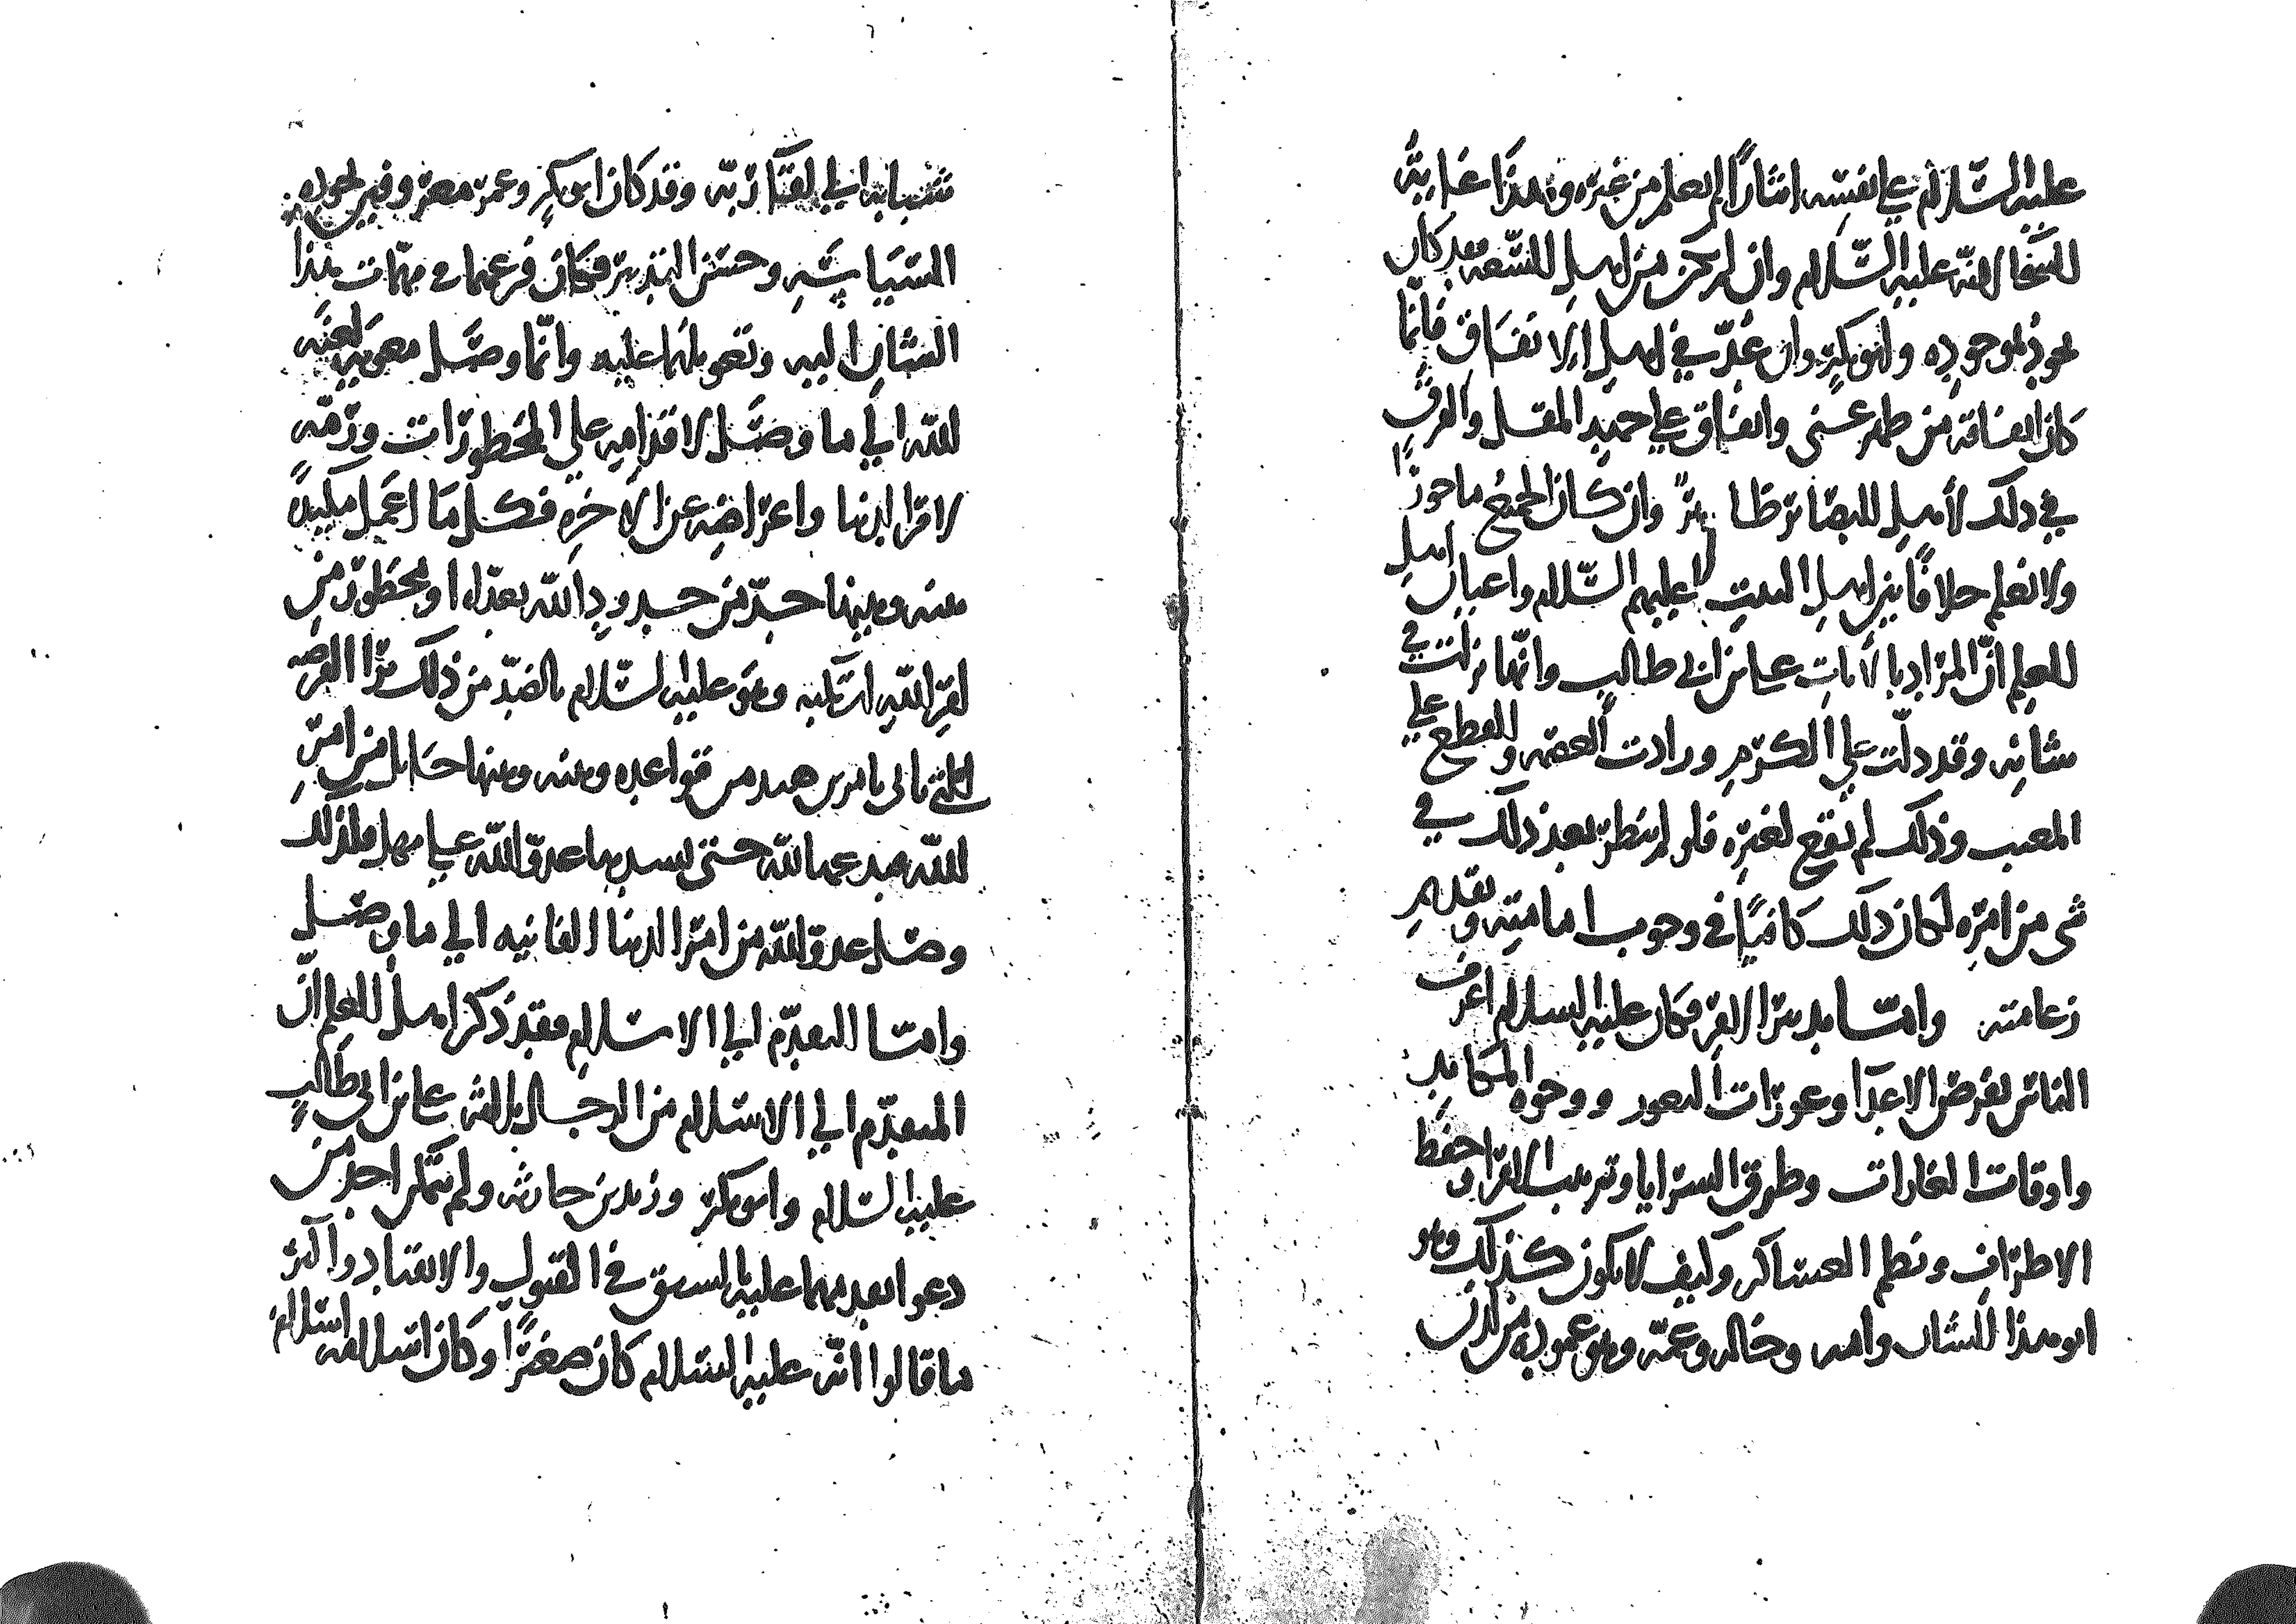 عليه السلام على نفسه ايثارًا لم يعلم من غيره وهذا غاية
السخا لانه عليه السلام وان لم يكن من اهل السعة فقد كان
يجود بموجوده وابو بكر وان عُدّ في اهل الانفاق فانما
كان انفاقه من ظهر غنى وانفاق علي جهد المقل والفرق
في ذلك لأهل البصائر ظاهر وان كان الجميع ماجورًا
ولا نعلم خلافًا بين اهل البيت عليهم السلام واعيان اهل
العلم انّ المراد بالآيات علي بن ابي طالب وانها نزلت في
شانه وقد دلّت على الكرم وزادت العصمة والقطع على
المغيب وذلك لم يقع لغيره فلو لم ينظر بعد ذلك في
شي من امره لكان ذلك كافيًا في وجوب امامته وتقديم
زعامته وامّا تدبير الامر فكان عليه السلام اعرف
الناس بفرص الاعدآ وعورات الثغور ووجوه المكايد
واوقات الغارات وطرق السرايا وترتيب الامرا وحفظ
الاطراف ونظم العساكر وكيف لا يكون كذلك وهو
ابو هذا الشان وامه وخاله وعمّه وهو عموده من لدن
شبابه الى لقآ ربّه وقد كان ابو بكر وعمر معروفين بجوده
السياسة وحسن التدبير فكان فزعهما في مهمات هذا
الشان اليه وتعويلهما عليه وانّما وصّل معوية لعنه
الله الى ما وصّل لاقدامه على المحظورات ورَمّه
لامر الدنيا واعراضه عن الآخره فكل ما اعمل مكيدةً
بينه وبينها حدّ من حدود الله تعدّاه او محظور من
امر الله ارتكبه وهو عليه السلام بالضدّ من ذلك يرا الفرصه
قواعده وبينه وبينها حايل من امر
الله عمدَ عما لله حتى يسبق بها عدوّ الله على مهل فلذلك
وصل عدوّ الله من امر الدنيا الفانيه الى ما وصل
وامّا التقدّم الى الاسلام فقد ذكر اهل العلم انّ
المتقدّم الى الاسلام من الرجال ثلاثة علي بن ابي طالب
عليه السلام وابو بكر وزيد بن حارثه ولم يتمكن احد من
دعوا تقدمهما عليه بالسبق في القبول والانقياد واكثر
ما قالوا انّه عليه السلام كان صغيرًا وكان اسلامه اسلام